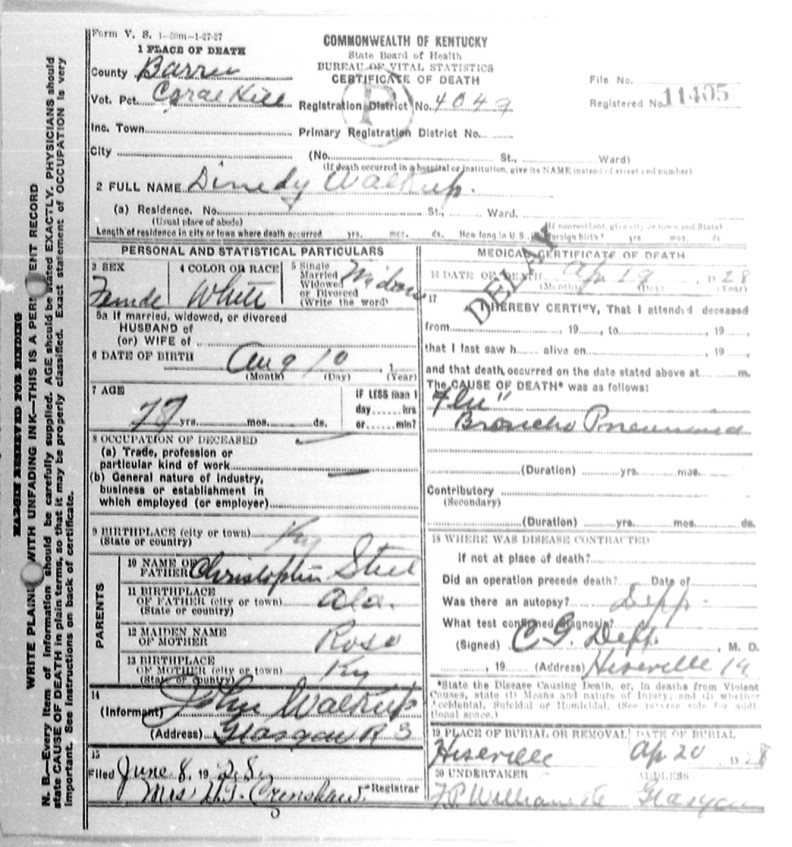 Form V. S. 1-50m-1-27-27
COMMONWEALTH OF KENTUCKY
State Board of Health
BUREAU OF VITAL STATISTICS
CERTIFICATE OF DEATH
1 PLACE OF DEATH
County Barren
Vot. Pct. Coral Hill
Inc. Town
City
Registration District No. 4047
Primary Registration District No.
File No.
Registered No. 11405
(No. St., Ward)
(If death occurred in a hospital or institution, give its NAME instead of street and number)
2 FULL NAME Walkup.
(a) Residence. No. St., Ward.
(Usual place of abode) (If nonresident, give city or town and State)
Length of residence in city or town where death occurred yrs. mos. ds. How long in U. S., if of foreign birth? yrs. mos. ds
PERSONAL AND STATISTICAL PARTICULARS
3 SEX
Female
4 COLOR OR RACE
White
5 Single
Married
Widowed
or Divorced
(Write the word)
Widow
5a If married, widowed, or divorced
HUSBAND of
(or) WIFE of
6 DATE OF BIRTH Aug 10, 1
(Month) (Day) (Year)
7 AGE
77 yrs. mos. ds.
IF LESS than 1
day hrs
or min?
8 OCCUPATION OF DECEASED
(a) Trade, profession or
particular kind of work
(b) General nature of industry,
business or establishment in
which employed (or employer)
9 BIRTHPLACE (city or town)
(State or country) Ky
PARENTS
10 NAME OF
FATHER Christopher Steel
11 BIRTHPLACE
OF FATHER (city or town)
(State or country) Ala.
12 MAIDEN NAME
OF MOTHER Rose
13 BIRTHPLACE
OF MOTHER (city or town)
(State or country) Ky
14
(Informant) John Walkup
(Address) Glasgow R 3
15
Filed June 8, 1928
Mrs. Crenshaw. Registrar
MEDICAL CERTIFICATE OF DEATH
DELAY
16 DATE OF DEATH Apr 19 1928
(Month) (Day) (Year)
17
I HEREBY CERTIFY, That I attended deceased
from , 19 , to , 19
that I last saw h alive on , 19 ,
and that death occurred on the date stated above at m.
The CAUSE OF DEATH* was as follows:
"Flu"
Broncho Pneumonia
(Duration) yrs. mos.
Contributory
(Secondary)
(Duration) yrs. mos. ds.
18 WHERE WAS DISEASE CONTRACTED
If not at place of death?
Did an operation precede death? Date of
Was there an autopsy?
What test confirmed diagnosis?
(Signed) C G Depp. , M. D.
, 19 (Address) Hiseville
*State the Disease Causing Death, or, in deaths from Violent
Causes, state (1) Means and nature of Injury, and (2) whether
Accidental, Suicidal or Homicidal. (See reverse side for addi-
tional space.)
19 PLACE OF BURIAL OR REMOVAL
Hiseville
DATE OF BURIAL
Ap 20 1928
20 UNDERTAKER
ADDRESS
Glasgow
MARGIN RESERVED FOR BINDING
WRITE PLAINLY WITH UNFADING INK—THIS IS A PERMANENT RECORD
N. B.—Every item of information should be carefully supplied. AGE should be stated EXACTLY. PHYSICIANS should
state CAUSE OF DEATH in plain terms, so that it may be properly classified. Exact statement of OCCUPATION is very
important. See instructions on back of certificate.